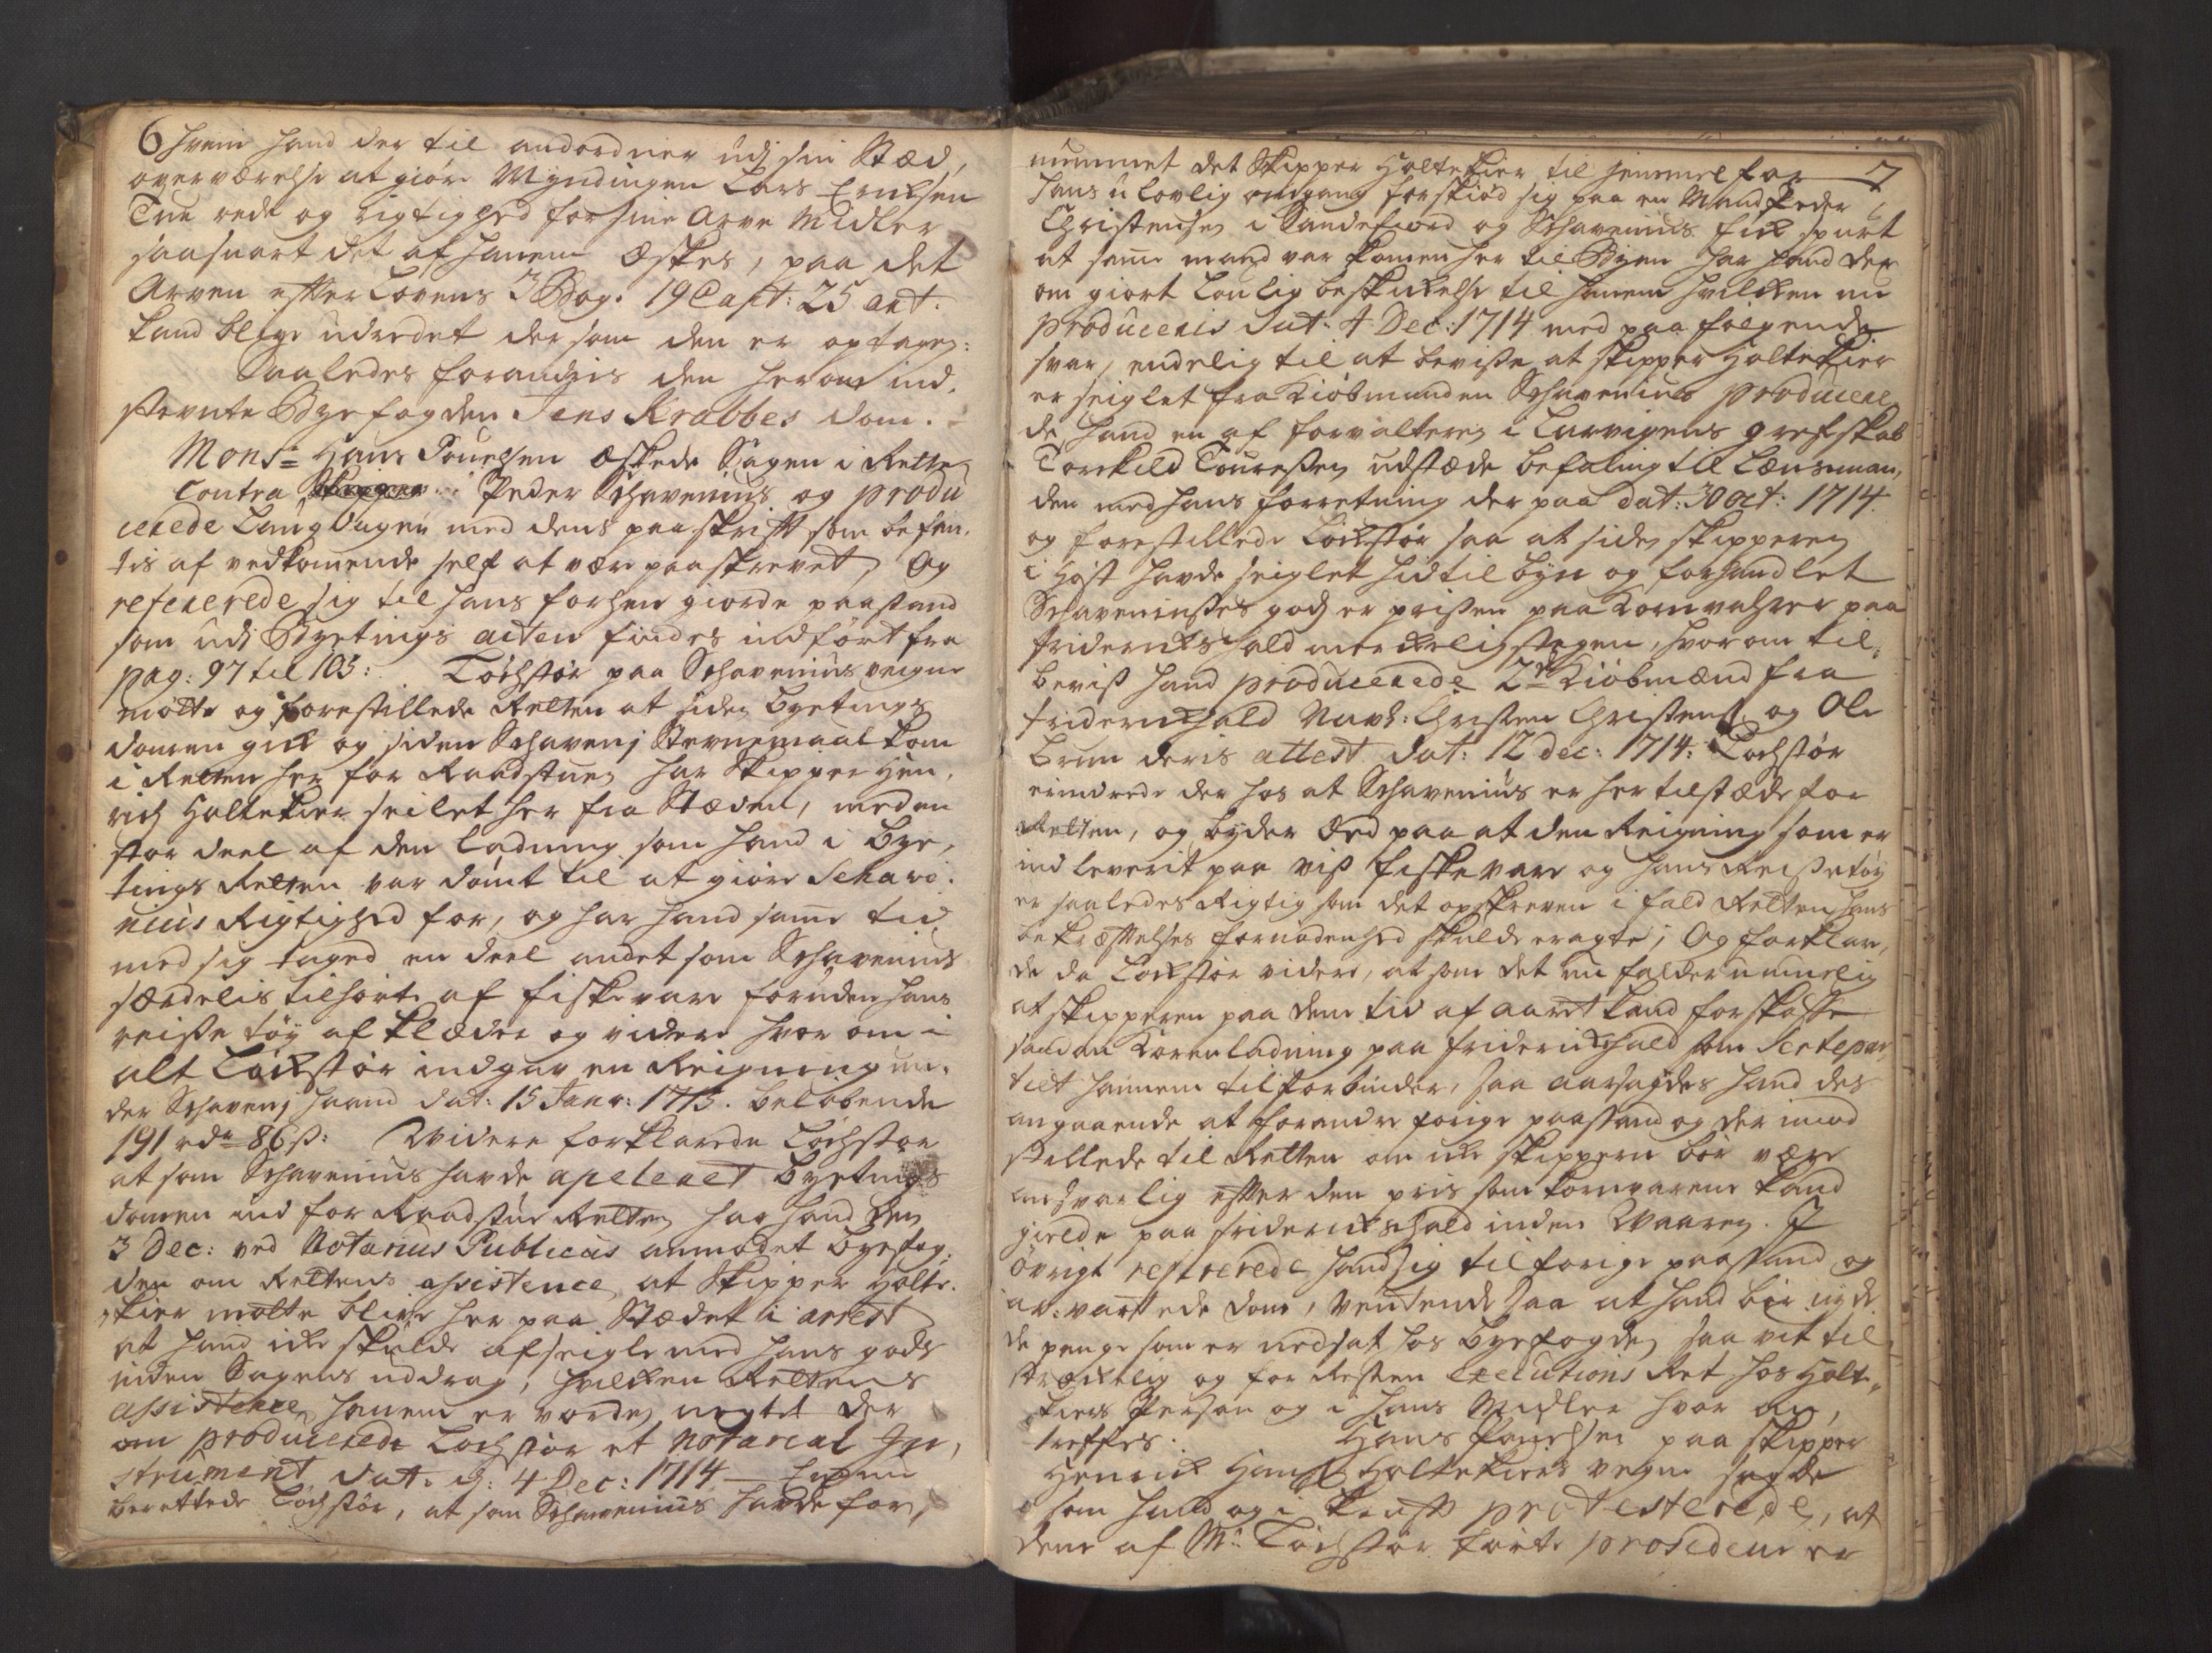 6
hvem hand der til anordner udj sin Stæd,
overværelse at giøre Myndlingen Lars Erichsen
True rede og rigtighed for sine Arve Midler
saasnart det af hanem æskes, paa det
Arven effter Lovens 3 Bog: 19 Capt: 25 art:
kand blive udredet der som den er optagen:
Saaledes forandris den herom ind,
stevnte Byefogden Jens Krabbes dom.
Monsr Hans Pouelsen æskede Sagen i Rette
Contra Peder Schavenius og produ
cerede Laugdagen med dens paaskrifft som befan,
tis af vedkomende self at være paaskrevet, Og
refererede sig til hans forhen giorde paastand
som udj Byetings acten findes indført fra
pag: 97 til 103: Lochstør paa Schavenius veigne
møtte og forestillede Retten at siden byetings
domen gick og siden Schavenj Stevnemaal kom
i Retten her for Raadstuen har Skipper Hen,
rich Holtekier seilet her fra Stæden, med en
stor deel af den ladning som hand i bye,
tings Retten var dømt til at giøre Schave,
nius Rigtighed for, og har hand same tid
med sig taged en deel andet som Schavenius
særdelis tilhørte af fiskevare foruden hans
reisse tøy af klæder og videre hvor om i
alt Lochstør indgav en Reigning un,
der Schavenj haand dat: 15 Janr: 1715. beløbende
191 rdr 86 s: Widere forklarede Lochstør
at som Schavenius havde apeleret byetings
domen ind for Raadstue Retten har hand den
3 Dec: ved Notarius Publicus anmodet byefog,
den om Rettens assistence, at Skipper Holte,
kier motte blive her paa Stædet i arrest
at hand icke skulde afseigle med hans gods
inden Sagens uddrag, hvilken Rettens
assistence hanem er vorden negtet der
om producerede Lochstør et Notarial In,
strument dat: d: 4 Dec: 1714
berettede Lochstør, at som Schavenius havde for,
7
nummet det Skipper Holtekier til hiemmel for
hans ulovlig omgang forskiød sig paa en Mand Peder
Christensen i Sandefiord og Schavenius fick spurt
at same mand var komen her til Byen har hand der
om giort lovlig beskickelse til hanem hvilken nu
produceris dat: 4 Dec: 1714 med paa følgende
svar, endelig til at bevisse at Skipper Holtekier
er seiglet fra Kiøbmanden Schavenius producere
de hand en af forvalteren i Laurvigens grefskab
Torkild Touressen udstæde befaling til Lænsman,
den med hans forretning der paa dat: 30 oct: 1714
og forestillede Lochstør saa at siden skipperen
i høst havde seiglet hid til byn og forhandlet
Schaveniusses gods er prissen paa Kornvahrer paa
Friderickshald merckelig stegen, hvorom til
beviss hand producerede 2de Kiøbmænd fra
Friderickhald Navl: Christen Christens: og Ole
Brun deris attest dat: 12 dec: 1714: Lochstør
erindrede der hos at Schavenius er her tilstæde for
Retten, og byder Eed paa at den Reigning som er
indleverit paa viss fiskevare og hans Reissetøy
er saaledes Rigtig som det opskreven i fald Retten hans
bekræfftelses fornødenhed skulde eragte; Og forklare,
de da Lochstør videre, at som det nu falder umuelig
at skipperen paa dene tid af aaret kand forskaffe
saadan Kornladning paa Friderickhald som Sertepar,
tiet hannem tilforbinder, saa aarsagedes hand des
angaaende at forandre forige paastand og der imod
stillede til Retten om icke skipperen bør være
ansvarlig effter den pris som Kornvarene kand
gielde paa Friderickshald inden Waaren. I
øvrigt refererede hand sig til forige paastand og
er: vartede dom, ventende saa at hand bør nyde
de penge som er nedsat hos byefogden saa vit til
streckelig og for Resten executions Ret hos Holte,
kiers Person og i hans Midler hvor an,
treffes. Hans Pouelsen paa skipper
Henrick Hans: Holtekiers vegne sagde
som hand og i krafft protesterede, at
dene af Mr: Lochstør førte prosedeur er